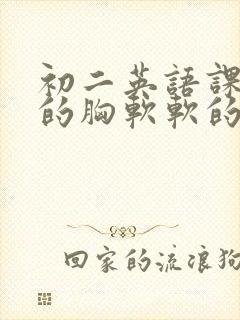 初二英語課
的胸軟軟的
回家的流浪狗